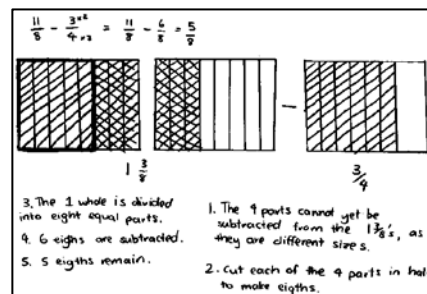 11/8 - 3×2/4×2 = 11/8 - 6/8 = 5/8
1 3/8
-
3/4
3. The 1 whole is divided
into eight equal parts.
4. 6 eighs are subtracted.
5. 5 eigths remain.
1. The 4 parts cannot yet be
subtracted from the 1 3/8's, as
they are different sizes.
2. Cut each of the 4 parts in half
to make eigths.